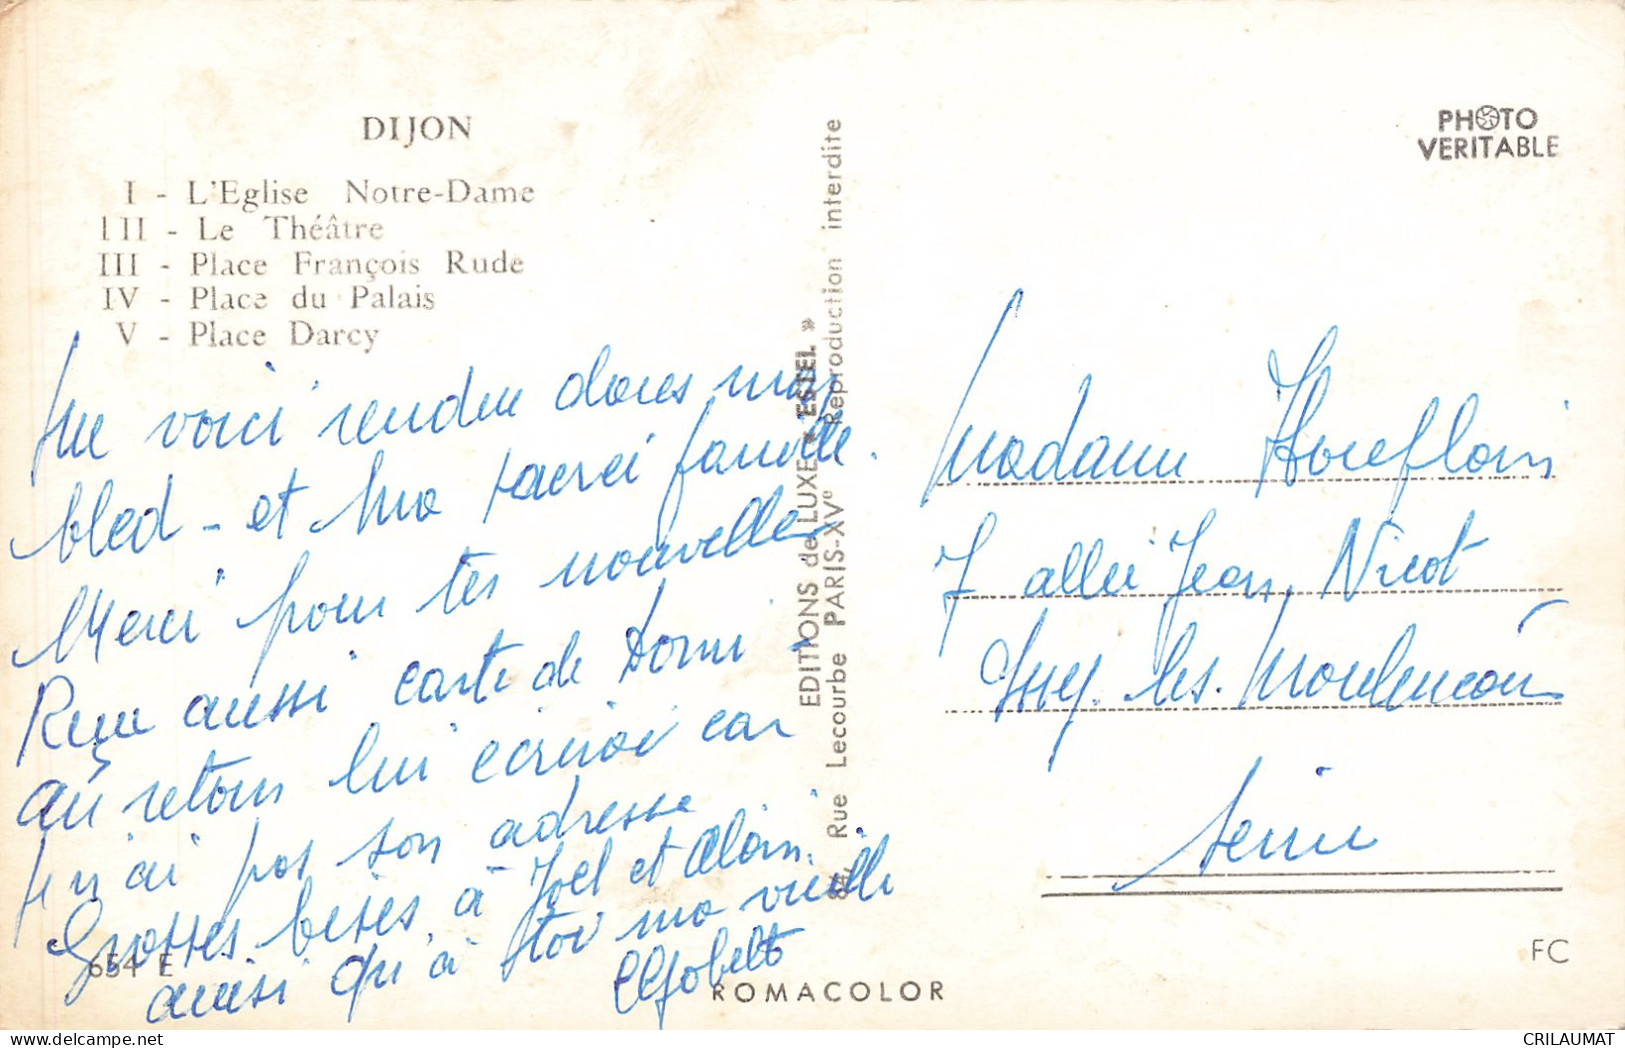 DIJON
I - L'Eglise Notre-Dame
III - Le Théâtre
III - Place François Rude
IV - Place du Palais
V - Place Darcy
Me voici rendue dans mon
bled - et ma sacrée famille.
Merci pour tes nouvelles
Reçu aussi carte de
au retour lui écrirai car
je n'ai pas son adresse
Grosses bises à Joël et Alain.
ainsi qu'à toi ma vieille
654 E
EDITIONS de LUXE « ESTEL »
84, Rue Lecourbe PARIS-XVe Reproduction interdite
ROMACOLOR
PHOTO
VERITABLE
Madame
7 allée Jean Nicot
Issy-les-Moulineaux
Seine
FC
CRILAUMAT